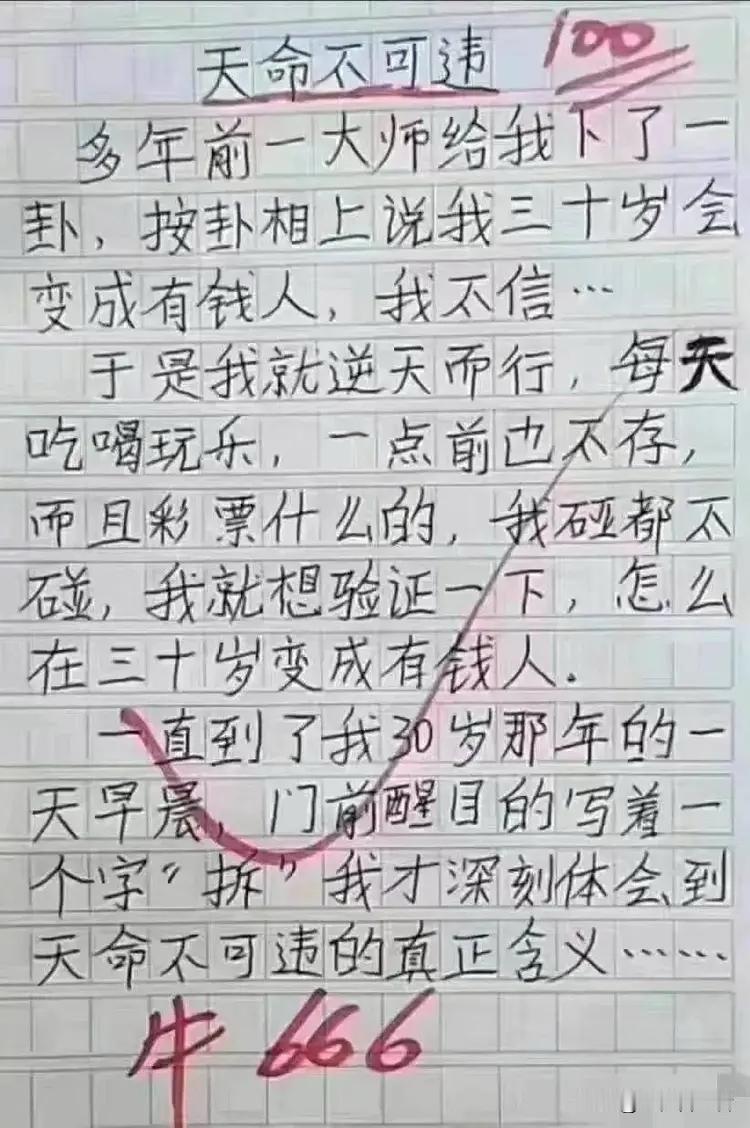 天命不可违 100
多年前一大师给我下了一
卦，按卦相上说我三十岁会
变成有钱人，我不信…
于是我就逆天而行，每天
吃喝玩乐，一点前也不存，
而且彩票什么的，我碰都不
碰，我就想验证一下，怎么
在三十岁变成有钱人.
一直到了我30岁那年的一
天早晨，门前醒目的写着一
个字“拆”我才深刻体会到
天命不可违的真正含义……
牛666